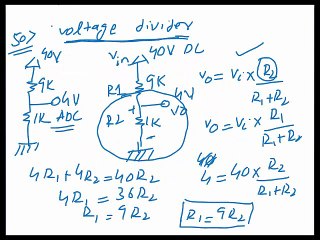 507 voltage divider
40V
9K
04V
1K ADC
Vin 40V DC
R1 9K
4V
V0
R2 + 1K -
V0 = Vi x R2 / R1+R2
V0 = Vi x R1 / R1+R2
4 = 40 x R2 / R1+R2
4R1 + 4R2 = 40R2
4R1 = 36R2
R1 = 9R2
R1 = 9R2